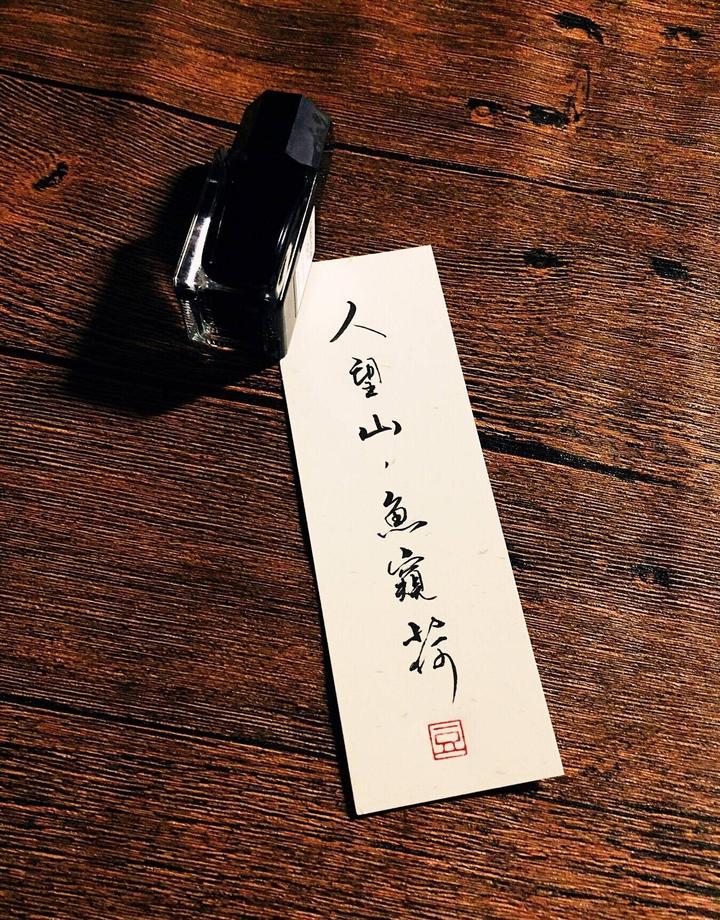 人望山,魚窺荷
豆